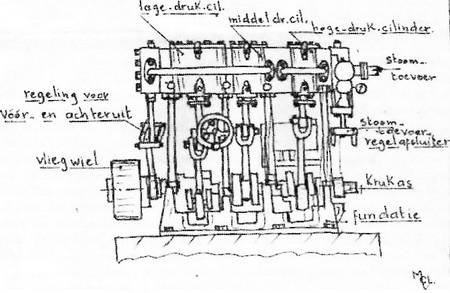 lage-druk.cil.
middeldr.cil.
hoge-druk.cilinder.
stoom-
toevoer
regeling voor
vóór- en achteruit
stoom-
toevoer-
regelafsluiter
vliegwiel
Krukas
fundatie